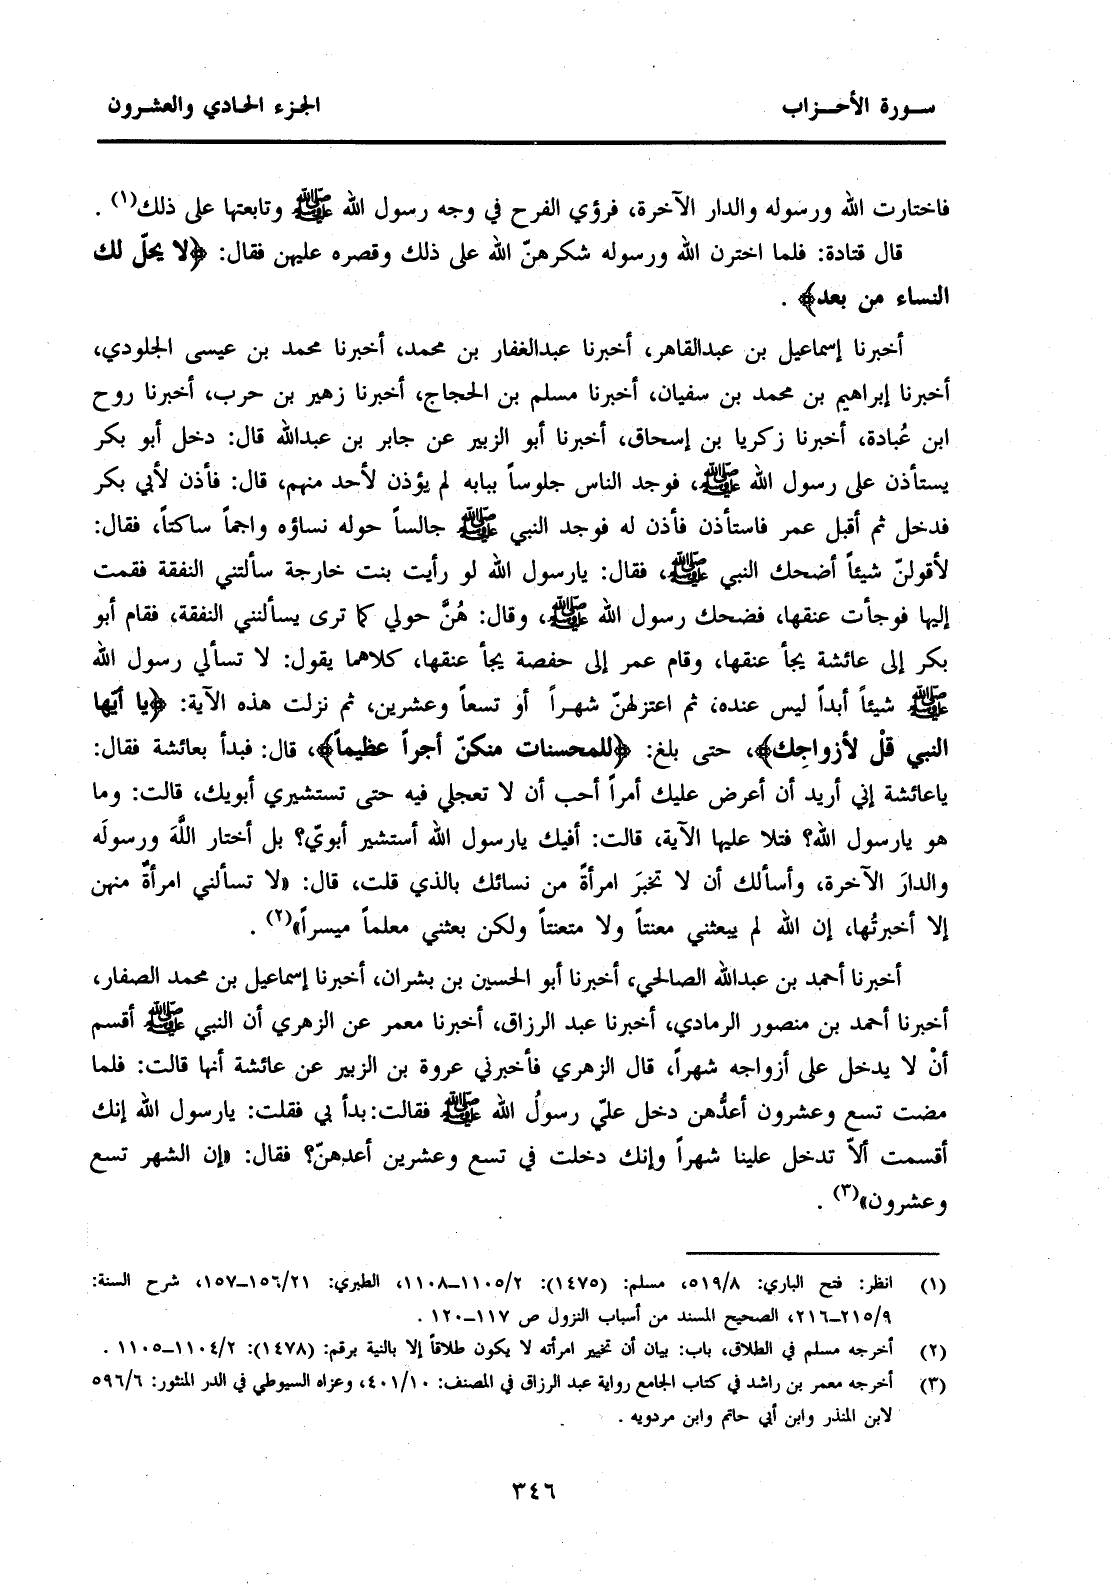 سورة الأحزاب
الجزء الحادي والعشرون
فاختارت الله ورسوله والدار الآخرة، فرؤي الفرح في وجه رسول الله ﷺ وتابعتها على ذلك(١) .
قال قتادة: فلما اخترن الله ورسوله شكرهنّ الله على ذلك وقصره عليهن فقال: ﴿لا يحلّ لك
النساء من بعد﴾ .
أخبرنا إسماعيل بن عبدالقاهر، أخبرنا عبدالغفار بن محمد، أخبرنا محمد بن عيسى الجلودي،
أخبرنا إبراهيم بن محمد بن سفيان، أخبرنا مسلم بن الحجاج، أخبرنا زهير بن حرب، أخبرنا روح
ابن عُبادة، أخبرنا زكريا بن إسحاق، أخبرنا أبو الزبير عن جابر بن عبدالله قال: دخل أبو بكر
يستأذن على رسول الله ﷺ، فوجد الناس جلوساً ببابه لم يؤذن لأحد منهم، قال: فأذن لأبي بكر
فدخل ثم أقبل عمر فاستأذن فأذن له فوجد النبي ﷺ جالساً حوله نساؤه واجماً ساكتاً، فقال:
لأقولنّ شيئاً أضحك النبي ﷺ، فقال: يارسول الله لو رأيت بنت خارجة سألتني النفقة فقمت
إليها فوجأت عنقها، فضحك رسول الله ﷺ، وقال: هُنَّ حولي كما ترى يسألنني النفقة، فقام أبو
بكر إلى عائشة يجأ عنقها، وقام عمر إلى حفصة يجأ عنقها، كلاهما يقول: لا تسألي رسول الله
ﷺ شيئاً أبداً ليس عنده، ثم اعتزلهنّ شهراً أو تسعاً وعشرين، ثم نزلت هذه الآية: ﴿يا أيّها
النبي قلْ لأزواجِك﴾، حتى بلغ: ﴿للمحسنات منكنّ أجراً عظيماً﴾، قال: فبدأ بعائشة فقال:
ياعائشة إني أريد أن أعرض عليك أمراً أحب أن لا تعجلي فيه حتى تستشيري أبويك، قالت: وما
هو يارسول الله؟ فتلا عليها الآية، قالت: أفيك يارسول الله أستشير أبويّ؟ بل أختار اللَّهَ ورسولَه
والدارَ الآخرة، وأسألك أن لا تخبرَ امرأةً من نسائك بالذي قلت، قال: «لا تسألني امرأةٌ منهن
إلا أخبرتُها، إن الله لم يبعثني معنتاً ولا متعنتاً ولكن بعثني معلماً ميسراً»(٢) .
أخبرنا أحمد بن عبدالله الصالحي، أخبرنا أبو الحسين بن بشران، أخبرنا إسماعيل بن محمد الصفار،
أخبرنا أحمد بن منصور الرمادي، أخبرنا عبد الرزاق، أخبرنا معمر عن الزهري أن النبي ﷺ أقسم
أنْ لا يدخل على أزواجه شهراً، قال الزهري فأخبرني عروة بن الزبير عن عائشة أنها قالت: فلما
مضت تسع وعشرون أعدُّهن دخل عليّ رسولُ الله ﷺ فقالت: بدأ بي فقلت: يارسول الله إنك
أقسمت ألاّ تدخل علينا شهراً وإنك دخلت في تسع وعشرين أعدهنّ؟ فقال: «إن الشهر تسع
وعشرون»(٣) .
(١) انظر: فتح الباري: ٥١٩/٨، مسلم: (١٤٧٥): ١١٠٥/٢–١١٠٨، الطبري: ١٥٦/٢١–١٥٧، شرح السنة:
٢١٥/٩–٢١٦، الصحيح المسند من أسباب النزول ص ١١٧–١٢٠ .
(٢) أخرجه مسلم في الطلاق، باب: بيان أن تخيير امرأته لا يكون طلاقاً إلا بالنية برقم: (١٤٧٨): ١١٠٤/٢–١١٠٥ .
(٣) أخرجه معمر بن راشد في كتاب الجامع رواية عبد الرزاق في المصنف: ٤٠١/١٠، وعزاه السيوطي في الدر المنثور: ٥٩٦/٦
لابن المنذر وابن أبي حاتم وابن مردويه .
٣٤٦